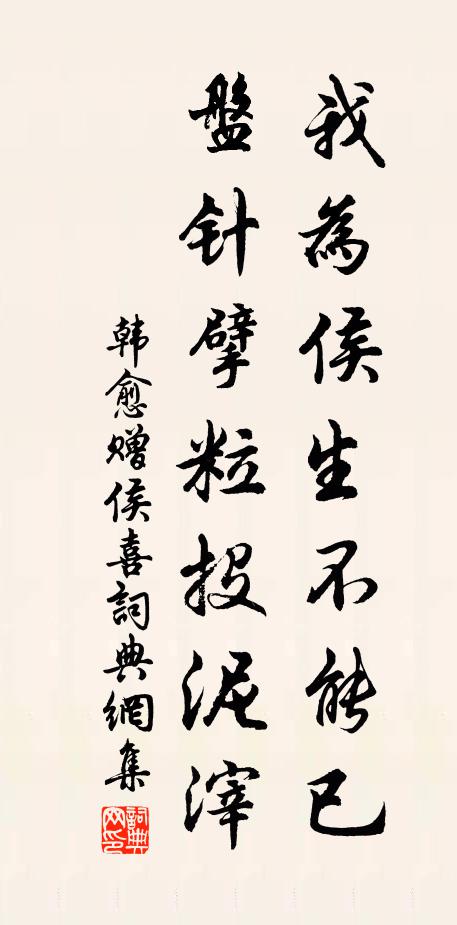 我為侯生不能已
盤针擘粒投泥滓
韩愈赠侯喜詞典網集
詞典網印